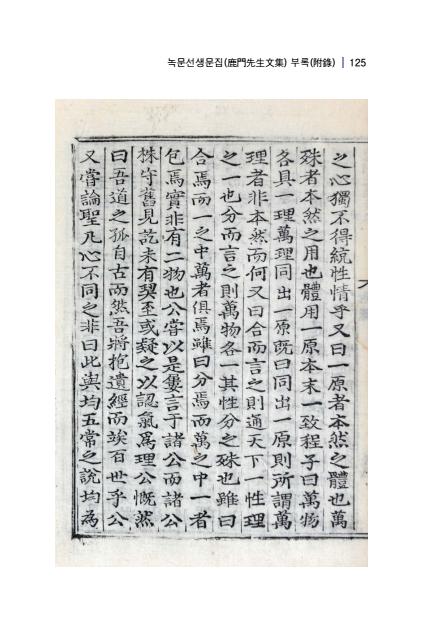 녹문선생문집(鹿門先生文集) 부록(附錄) | 125
之心獨不得統性情乎又曰一原者本然之體也萬
殊者本然之用也體用一原本末一致程子曰萬物
各具一理萬理同出一原旣曰同出一原則所謂萬
理者非本然而何又曰合而言之則通天下一性理
之一也分而言之則萬物各一其性分之殊也雖曰
合焉而一之中萬者俱焉雖曰分焉而萬之中一者
包焉實非有二物也公嘗以是屢言于諸公而諸公
株守舊見訖未有契至或疑之以認氣爲理公慨然
曰吾道之孤自古而然吾將抱遺經而竢百世乎公
又嘗論聖凡心不同之非曰此與均五常之說均為